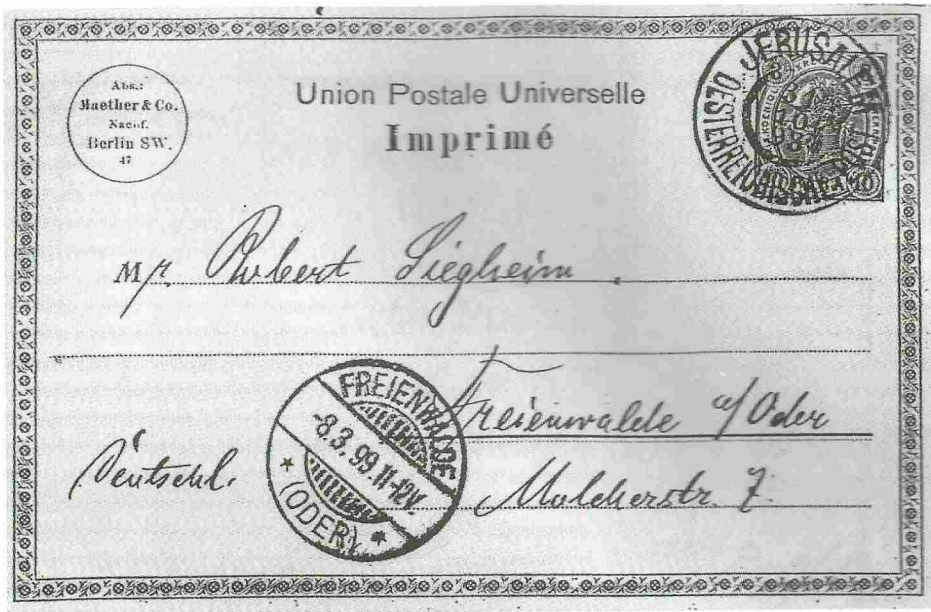 Abs.:
Maether & Co.
Nachf.
Berlin SW.
47
Union Postale Universelle
Imprimé
JERUSALEM
OESTERREICHISCHE POST
10
Mr. Robert Siegheim.
Freienwalde a/Oder
Deutschl.
Malcherstr. 7.
FREIENWALDE
-8.3.99.11-12V.
* (ODER). *